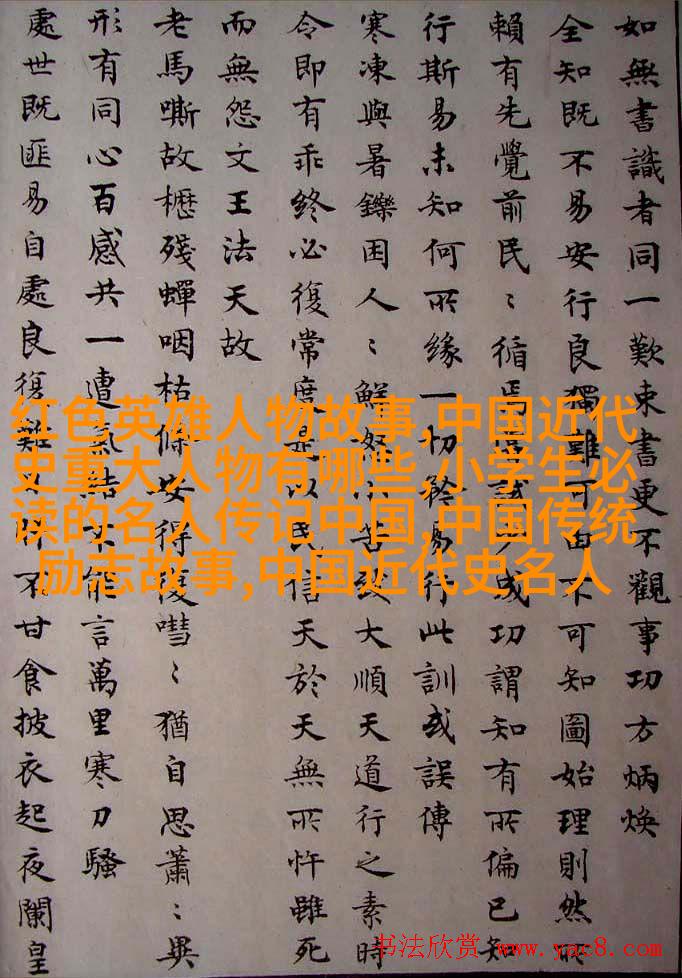 如無書識者同一歎束書更不觀事功方炳煥
全知既不易安行良獨難可由不可知圖始理則然所
賴有先覺前民〻循焉試成功謂知有所偏已知
行斯易未知何所緣一切務易行此訓或誤傳
寒凍與暑鑠困人〻鮮怒以苦大順天道行之素時
令即有乖終必復常度是以民信天於天無所忤雖死
而無怨文王法天故
老馬嘶故櫪殘蟬咽枯條安得復嘒〻猶自思蕭〻異
形有同心百感共一遭氣結不能言萬里寒刀騷
處世既匪易自處良復難不甘食披衣起夜闌皇
红色英雄人物故事,中国近代
史重大人物有哪些,小学生必
读的名人传记中国,中国传统
励志故事,中国近代史名人
书法欣赏 www.yac8.com